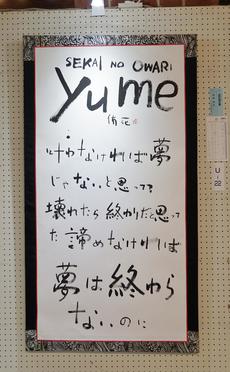 SEKAI NO OWARI
yume
叶わなければ夢
じゃないと思って?
壊れたら終りだと思って
た 諦めなければ
夢は終わら
ないのに
U-22